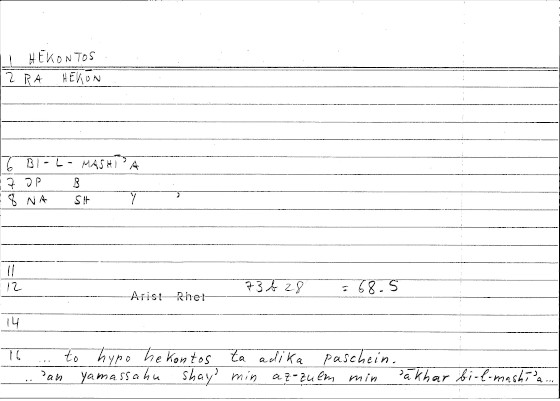 1 HEKONTOS
2 RA HEKŌN
6 BI-L-MASHĪʾA
7 JP B
8 NA SH Y ʾ
11
12 Arist Rhet 73b28 = 68.5
14
16 ... to hypo hekontos ta adika paschein.
..ʾan yamassahu shayʾ min aẓ-ẓulm min ʾākhar bi-l-mashīʾa...